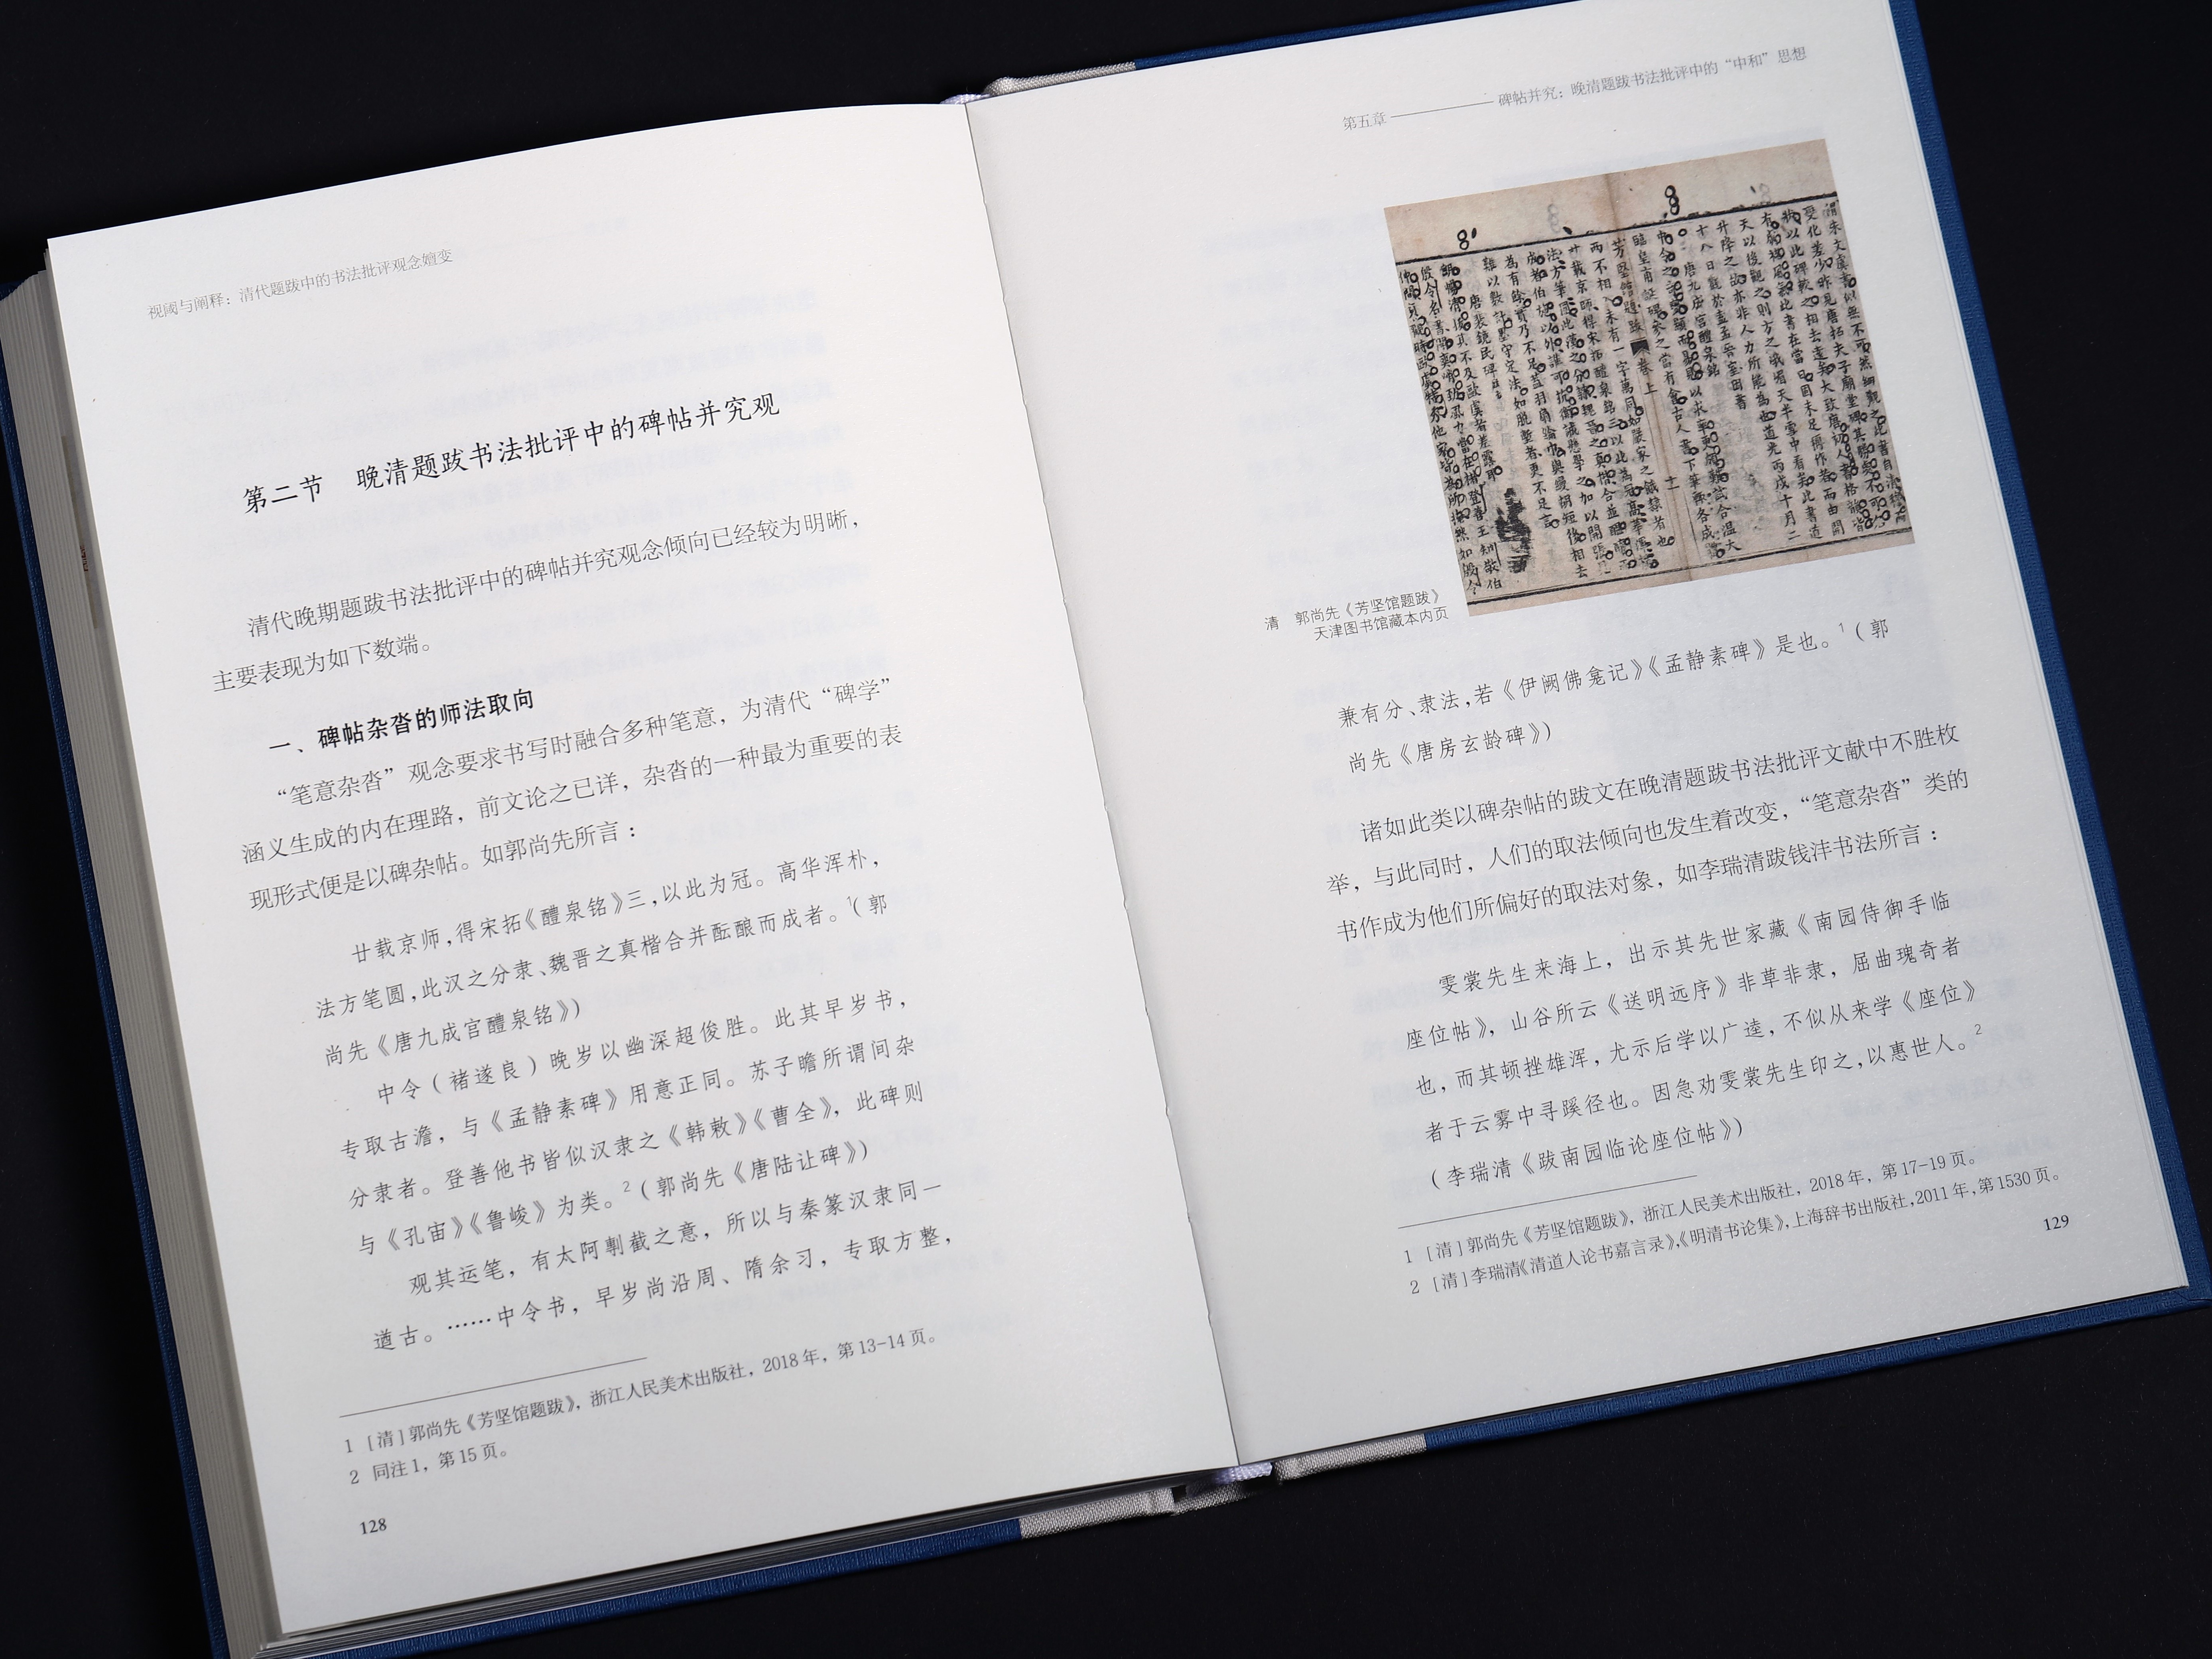 视阈与阐释：清代题跋中的书法批评观念嬗变
第二节　晚清题跋书法批评中的碑帖并究观
清代晚期题跋书法批评中的碑帖并究观念倾向已经较为明晰，
主要表现为如下数端。
一、碑帖杂沓的师法取向
“笔意杂沓”观念要求书写时融合多种笔意，为清代“碑学”
涵义生成的内在理路，前文论之已详，杂沓的一种最为重要的表
现形式便是以碑杂帖。如郭尚先所言：
廿载京师，得宋拓《醴泉铭》三，以此为冠。高华浑朴，
法方笔圆，此汉之分隶、魏晋之真楷合并酝酿而成者。1（郭
尚先《唐九成宫醴泉铭》）
中令（褚遂良）晚岁以幽深超俊胜。此其早岁书，
专取古澹，与《孟静素碑》用意正同。苏子瞻所谓间杂
分隶者。登善他书皆似汉隶之《韩敕》《曹全》，此碑则
与《孔宙》《鲁峻》为类。2（郭尚先《唐陆让碑》）
观其运笔，有太阿剸截之意，所以与秦篆汉隶同一
道古。……中令书，早岁尚沿周、隋余习，专取方整，
1 [清]郭尚先《芳坚馆题跋》，浙江人民美术出版社，2018年，第13-14页。
2 同注1，第15页。
128
第五章 碑帖并究：晚清题跋书法批评中的“中和”思想
清　郭尚先《芳坚馆题跋》
天津图书馆藏本内页
兼有分、隶法，若《伊阙佛龛记》《孟静素碑》是也。1（郭
尚先《唐房玄龄碑》）
诸如此类以碑杂帖的跋文在晚清题跋书法批评文献中不胜枚
举，与此同时，人们的取法倾向也发生着改变，“笔意杂沓”类的
书作成为他们所偏好的取法对象，如李瑞清跋钱沣书法所言：
雯裳先生来海上，出示其先世家藏《南园侍御手临
座位帖》，山谷所云《送明远序》非草非隶，屈曲瑰奇者
也，而其顿挫雄浑，尤示后学以广逵，不似从来学《座位》
者于云雾中寻蹊径也。因急劝雯裳先生印之，以惠世人。2
（李瑞清《跋南园临论座位帖》）
1 [清]郭尚先《芳坚馆题跋》，浙江人民美术出版社，2018年，第17-19页。
2 [清]李瑞清《清道人论书嘉言录》，《明清书论集》，上海辞书出版社，2011年，第1530页。
129